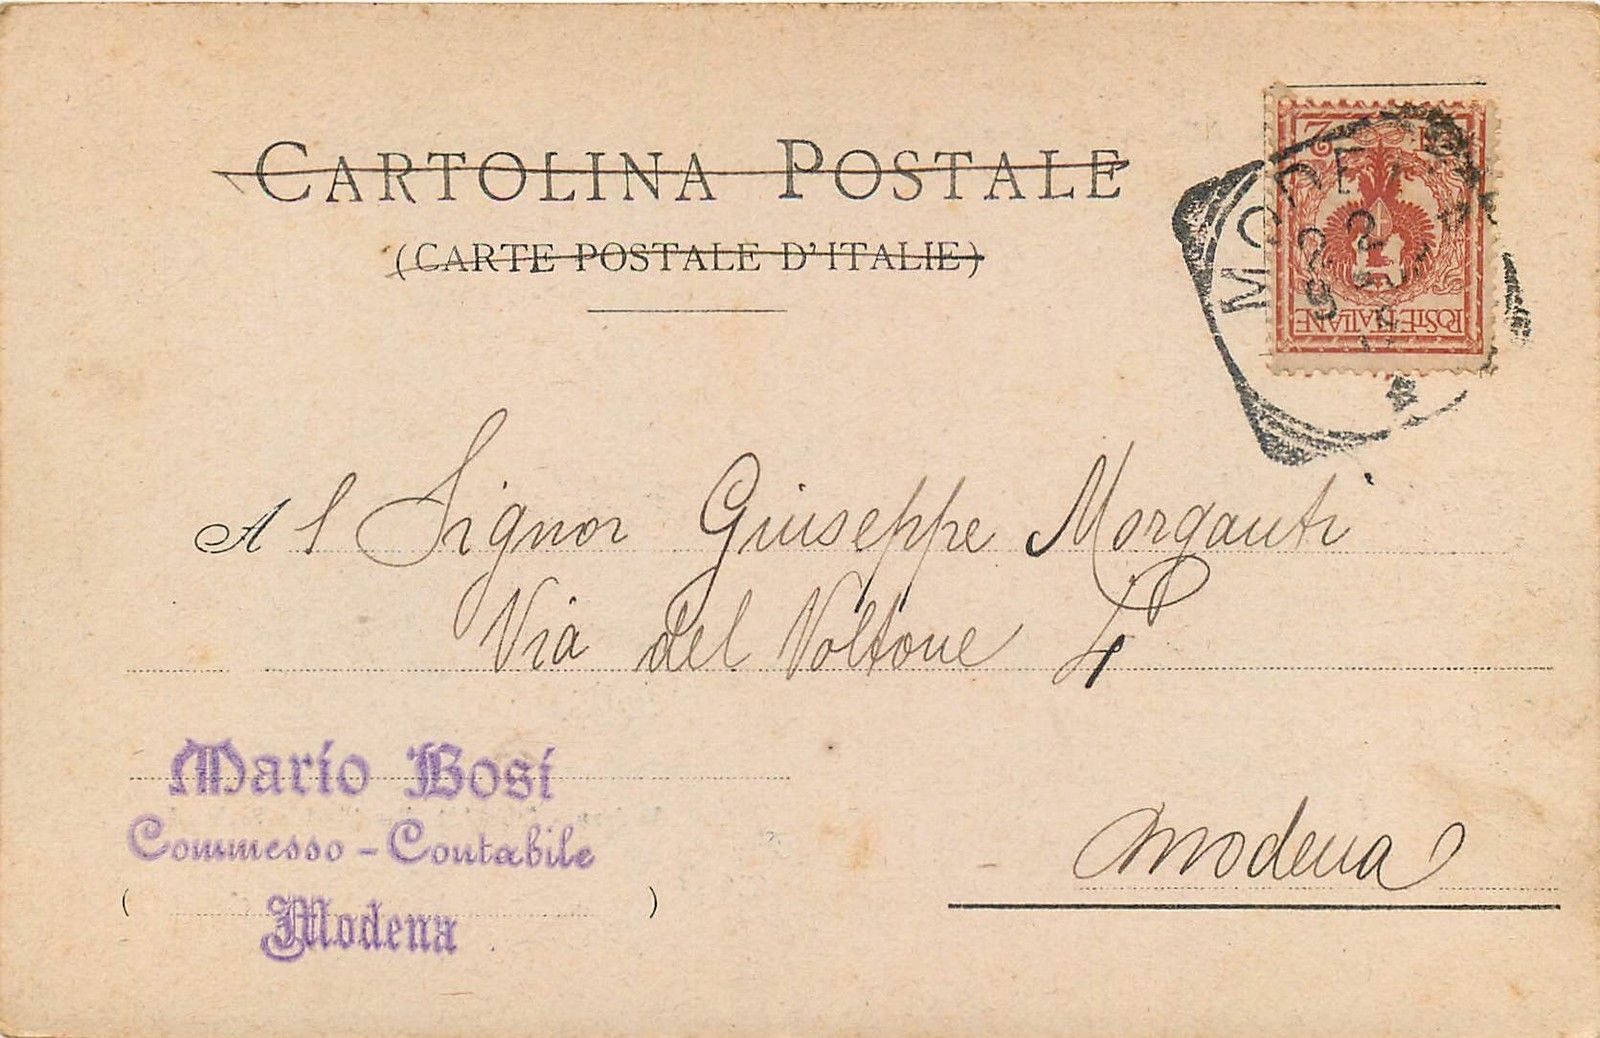 CARTOLINA POSTALE
(CARTE POSTALE D'ITALIE)
2
POSTE ITALIANE
Al Signor Giuseppe Morganti
Via del Voltone 4
Modena
Mario Bosi
Commesso - Contabile
Modena